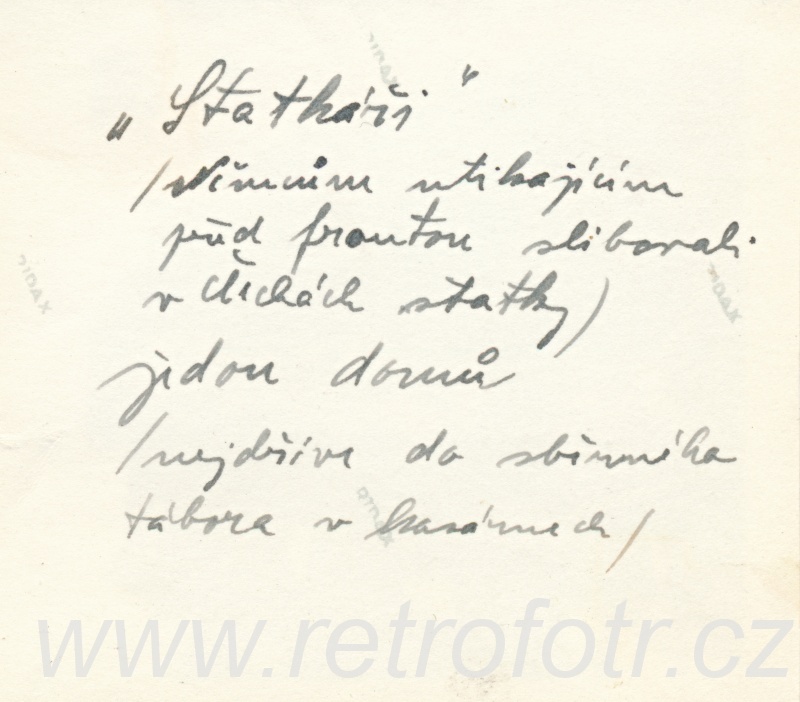 „Statkáři“
/Němcům utíkajícím
před frontou slibovali
v Čechách statky/
jedou domů
/nejdříve do sběrného
tábora v kasárnech/
DIDAX
DIDAX
DIDAX
DIDAX
www.retrofotr.cz